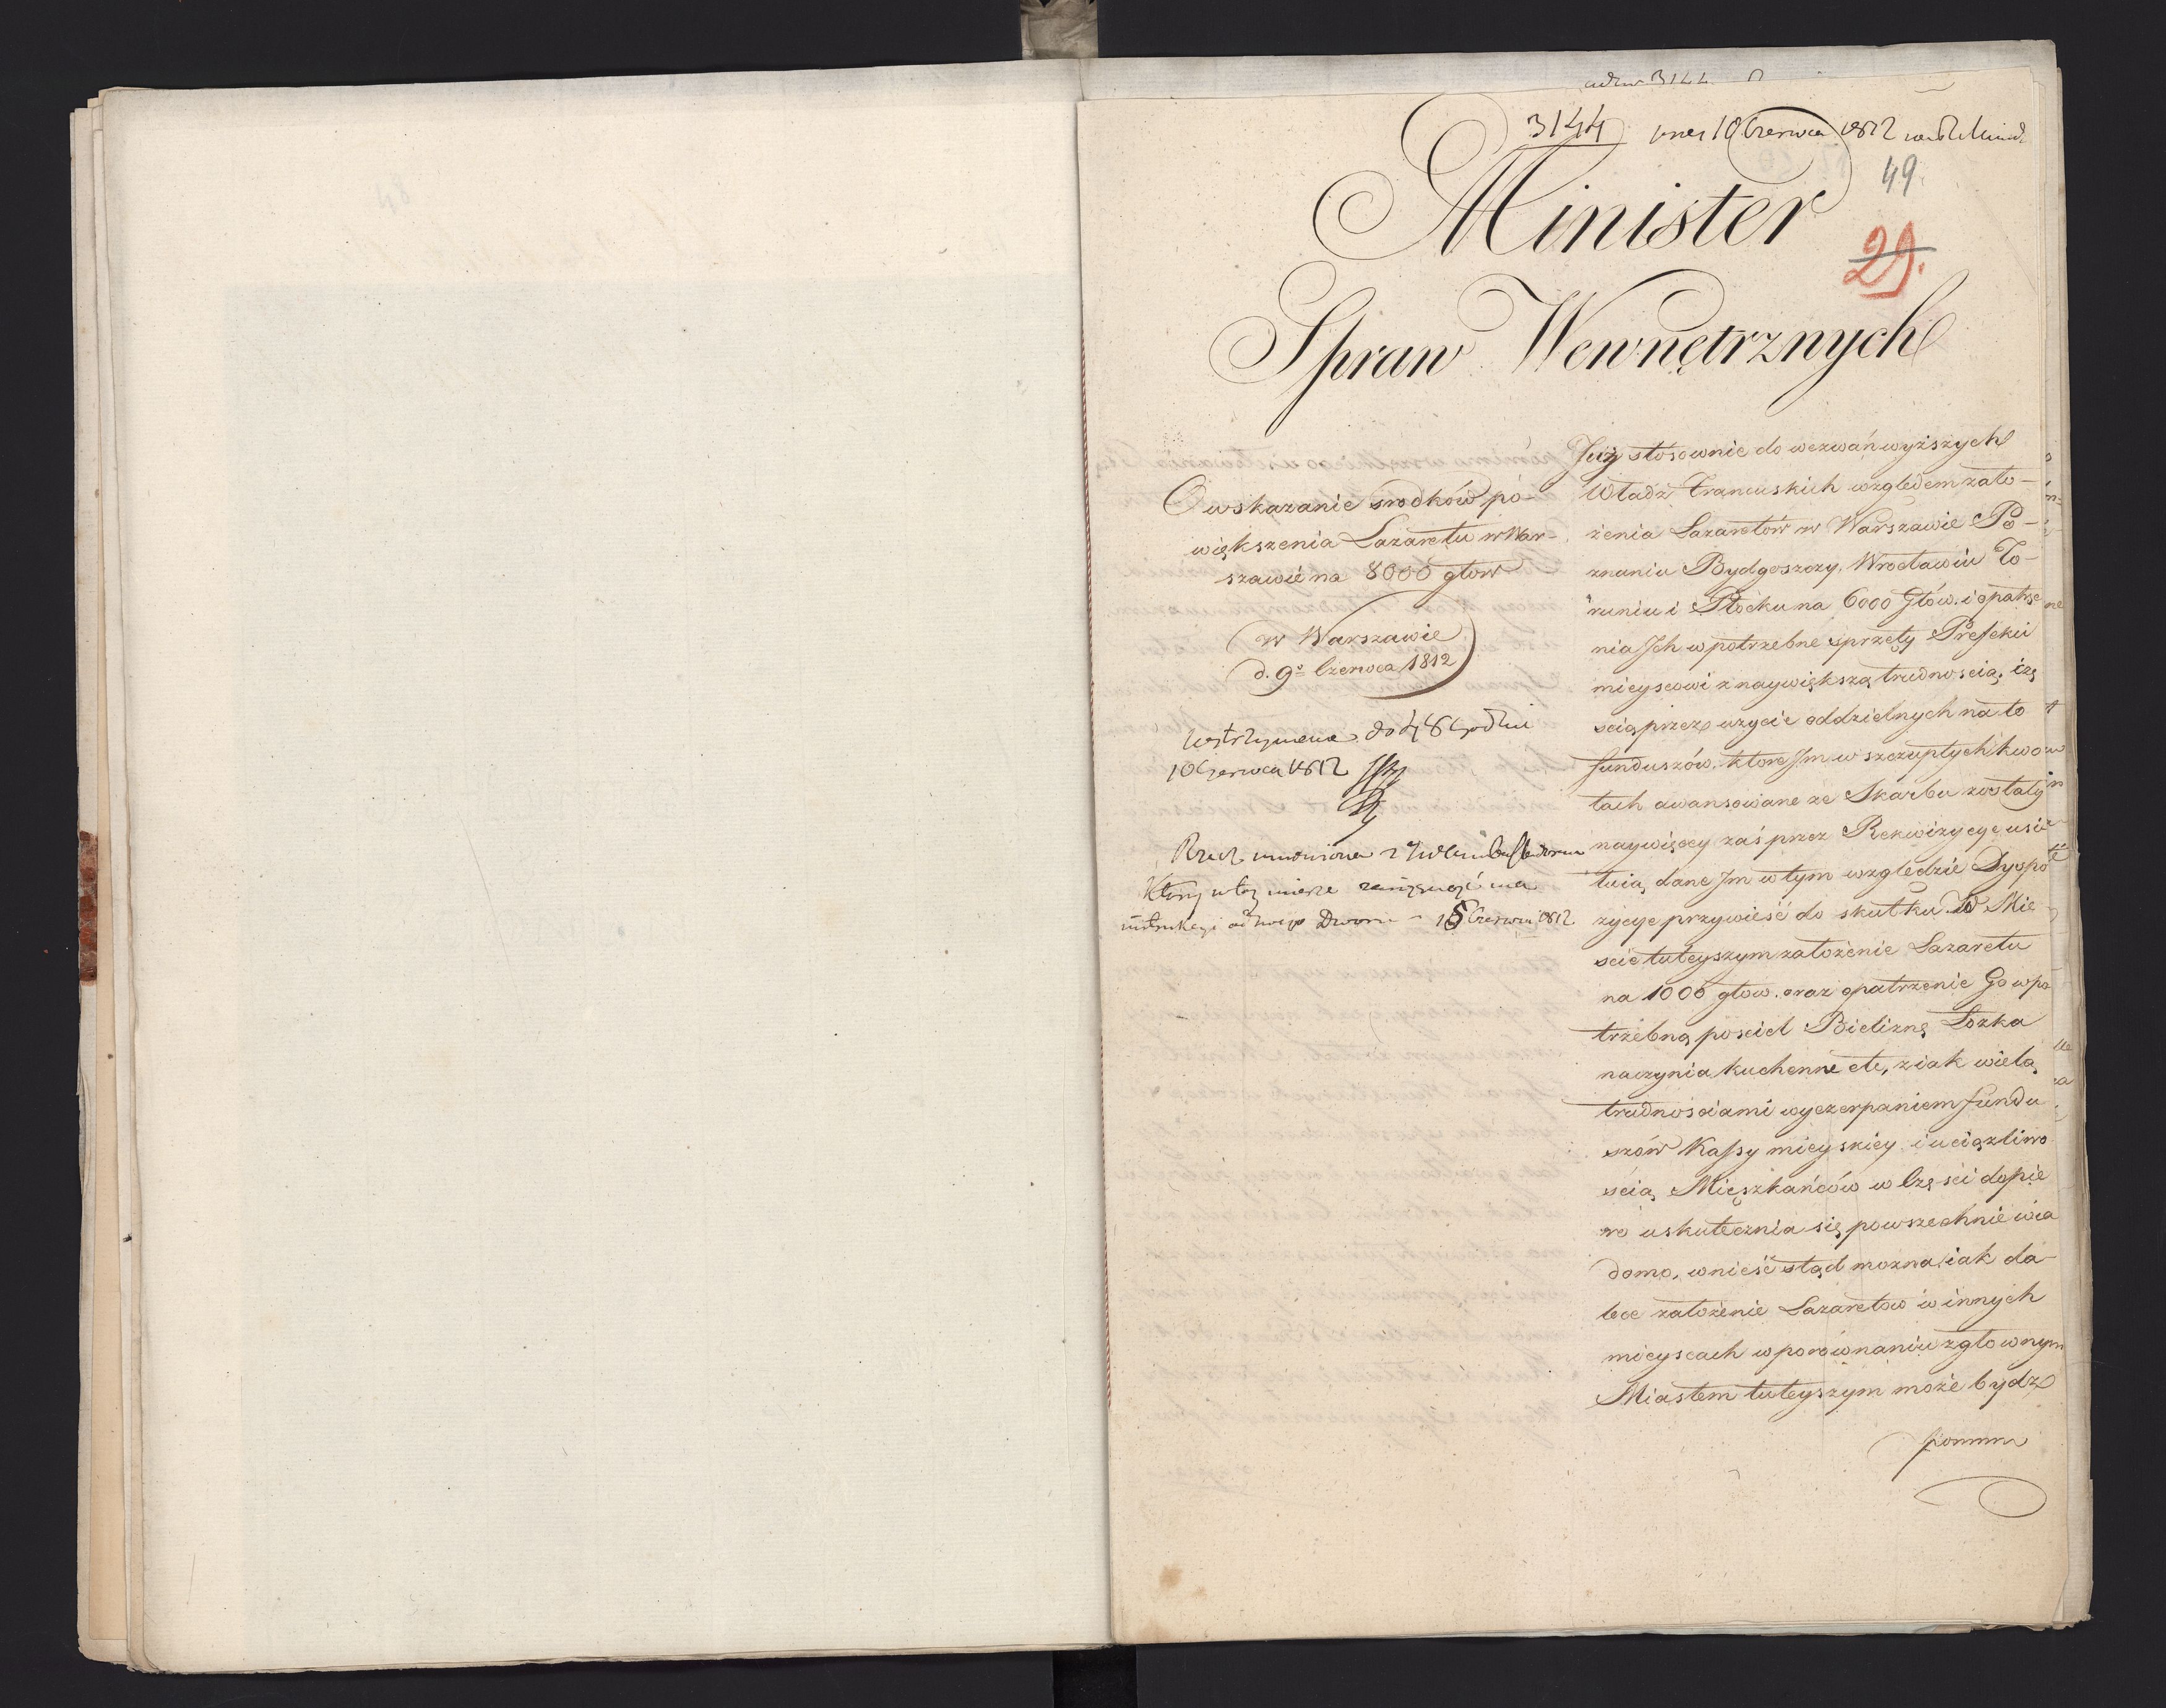 3144
10 Czerwca 1812
49
29.
Minister
Spraw Wewnętrznych
O wskazanie srodków po-
większenia Lazaretu w War-
szawie na 8000 głow
w Warszawie
d. 9º Czerwca 1812
wstrzymane do 48 Godzin
10 Czerwca 1812
Rzecz umowiona z
Który w tey mierze ma
instrukcyi od swego Dworu - 15 Czerwca 1812
Już stosownie do wezwań wyższych
Władz Francuskich względem zało-
żenia Lazaretów w Warszawie Po-
znaniu Bydgoszczy, Wrocławiu To-
runiu i Płocku na 6000 Głów. i opatrze
nia Ich w potrzebne sprzęty Prefekci
mieyscowi z naywiększą trudnoscią, czę
scią przez uzycie oddzielnych na to
funduszów, które Im w szczupłych kwo
tach awansowane ze Skarbu zostały
naywięcy zaś przez Rekwizycye usi
łuią dane Im w tym względzie Dyspo
zycye przywieść do skutku. W Mie
scie tuteyszym założenie Lazaretu
na 1000 głow. oraz opatrzenie Go w po
trzebną posciel Bieliznę Łozka
naczynia kuchenne etc, z iak wielą
trudnosciami wyczerpaniem fundu
szów Kassy mieyskiey i uciązliwo
scią Mieszkańców w Części dopie
ro uskutecznia się powszechnie wia
domo, wnieść stąd mozna iak da
lece założenie Lazaretow w innych
mieyscach w porównaniu z głownym
Miastem tuteyszym może bydz
pomim